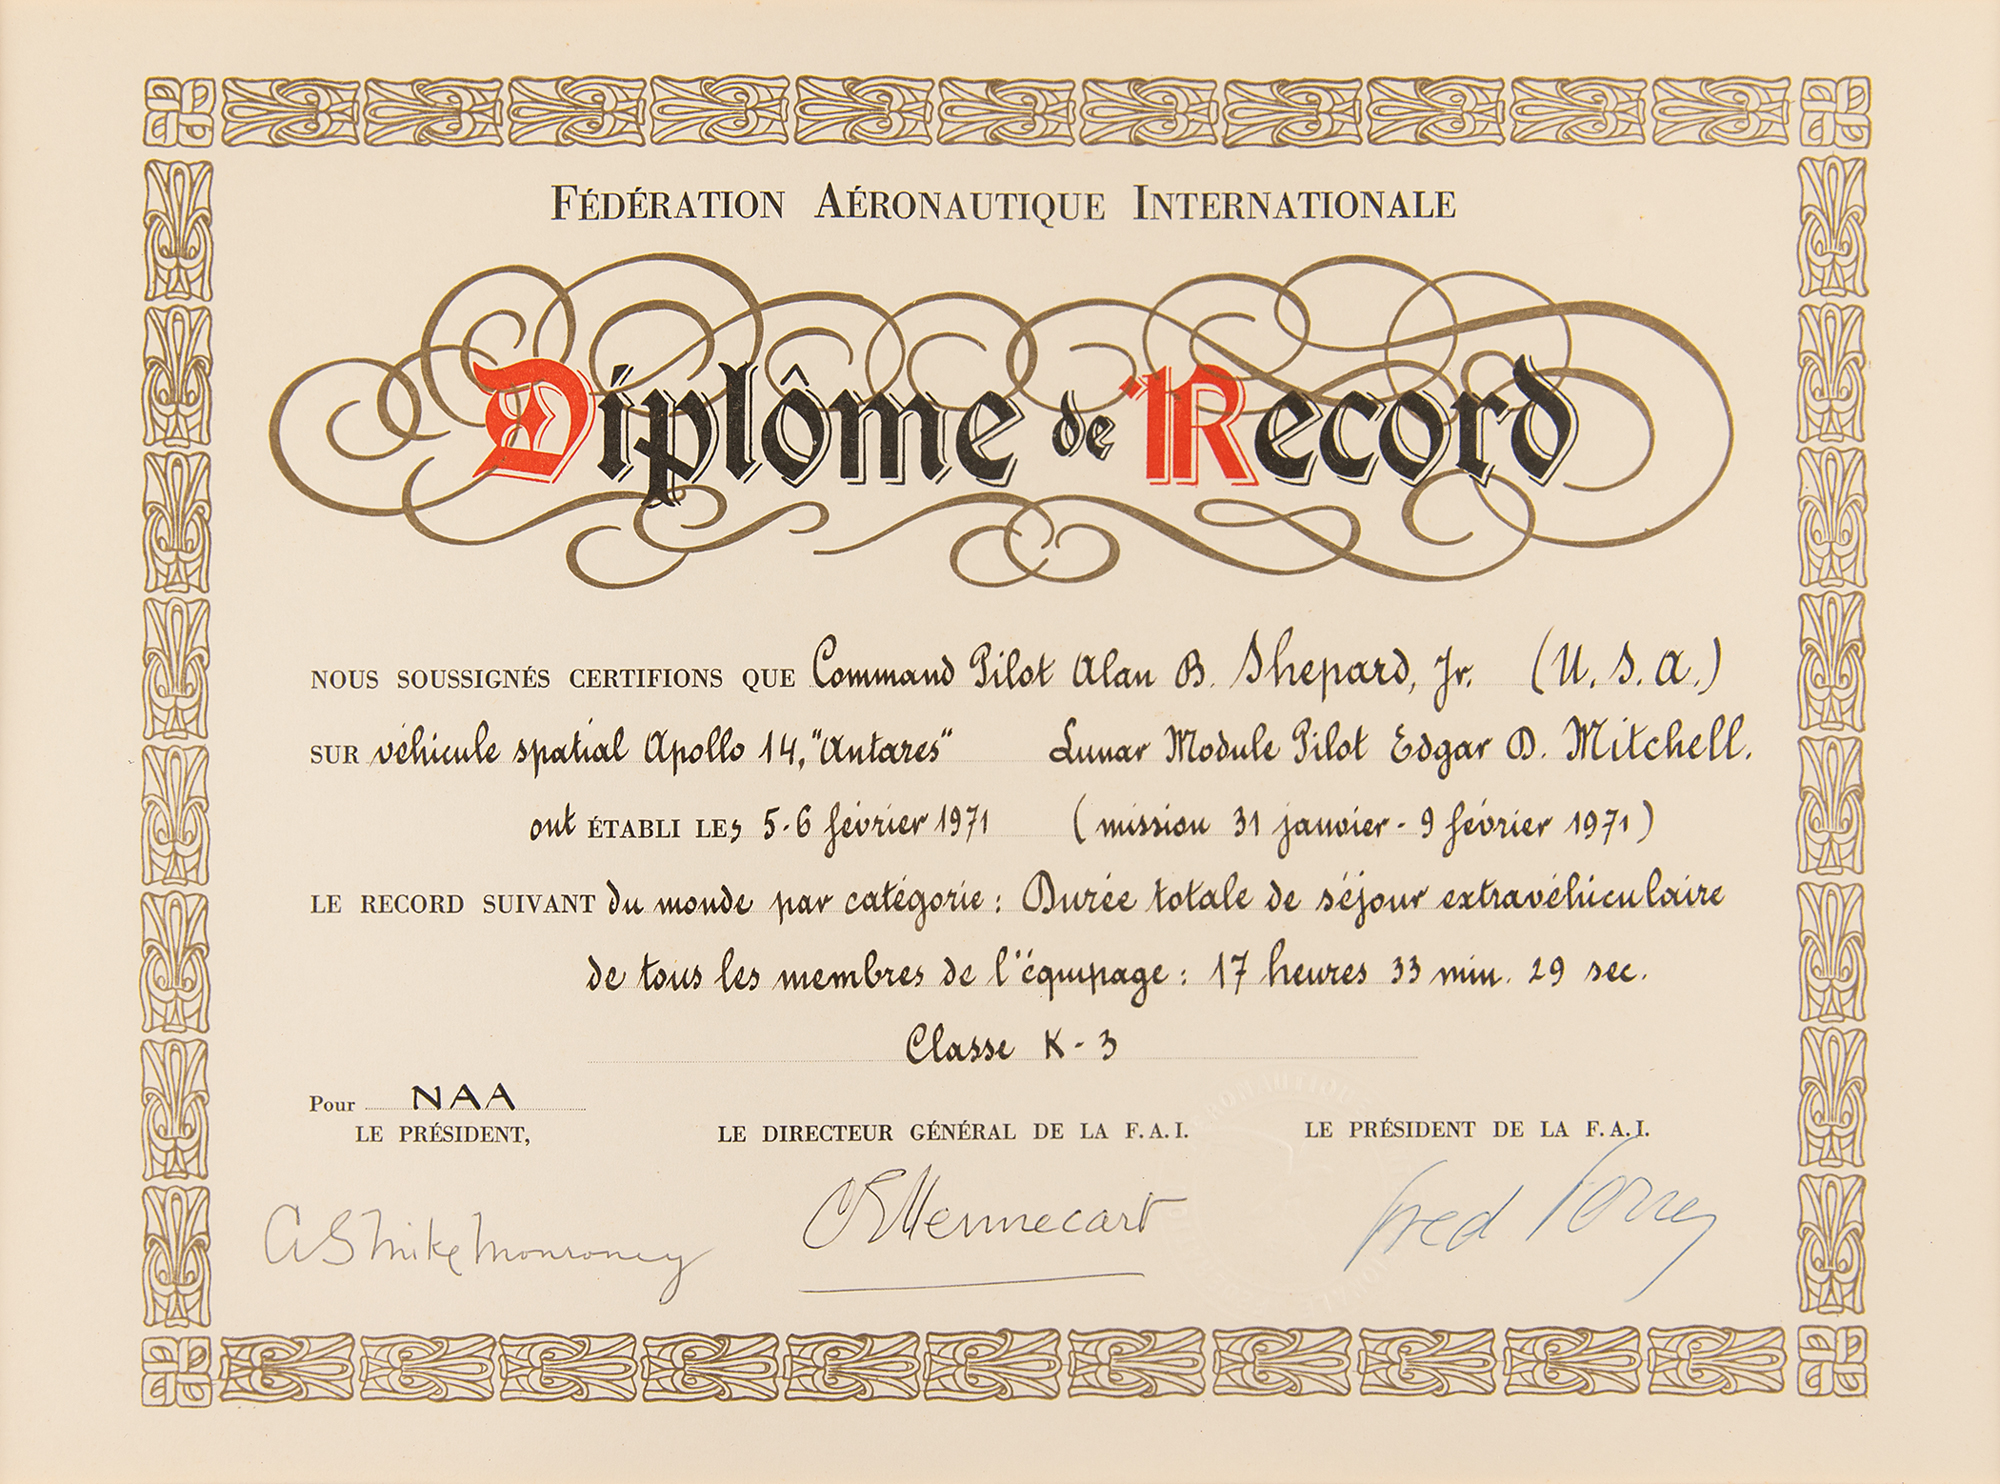 FÉDÉRATION AÉRONAUTIQUE INTERNATIONALE
Diplôme de Record
NOUS SOUSSIGNÉS CERTIFIONS QUE Command Pilot Alan B. Shepard, Jr. (U.S.A.)
SUR véhicule spatial Apollo 14, "Antares" Lunar Module Pilot Edgar D. Mitchell.
ont ÉTABLI LEs 5-6 février 1971 (mission 31 janvier - 9 février 1971)
LE RECORD SUIVANT du monde par catégorie : Durée totale de séjour extravéhiculaire
de tous les membres de l'équipage : 17 heures 33 min. 29 sec.
Classe K-3
Pour NAA
LE PRÉSIDENT, LE DIRECTEUR GÉNÉRAL DE LA F.A.I. LE PRÉSIDENT DE LA F.A.I.
A S Mike Monroney Hennecart